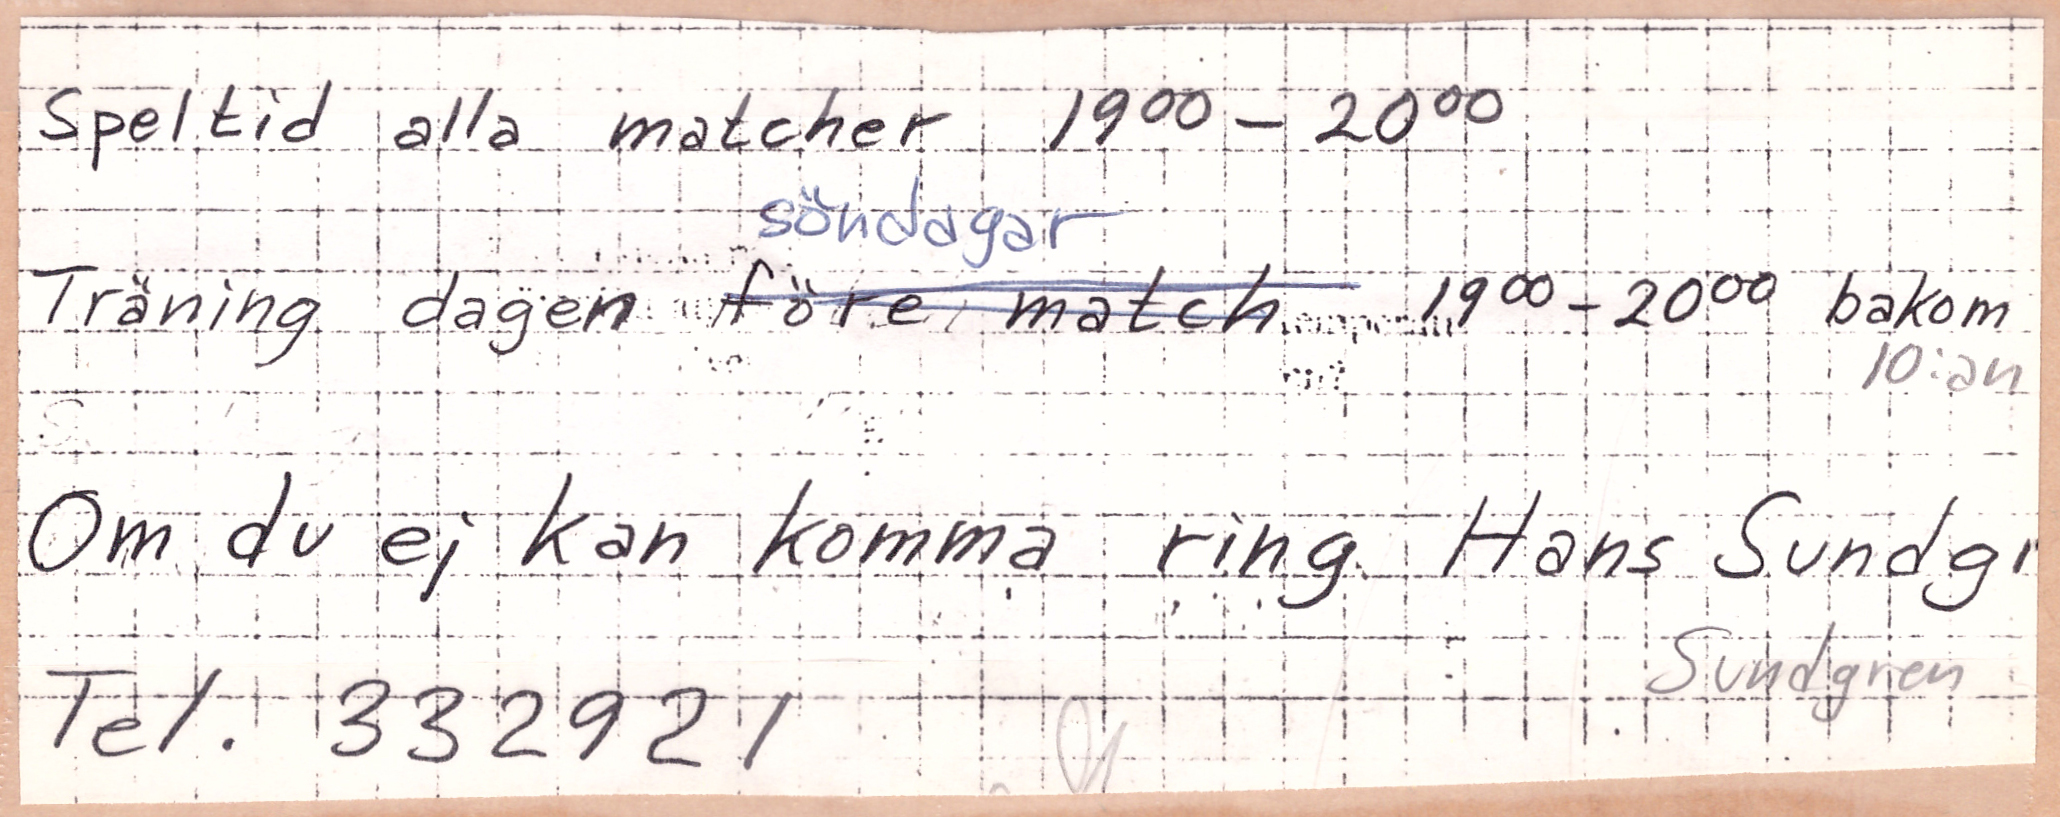 Speltid alla matcher 19⁰⁰ - 20⁰⁰
söndagar
Träning dagen före match 19⁰⁰ - 20⁰⁰ bakom
10:an
Om du ej kan komma ring Hans Sundgr
Sundgren
Tel. 332921